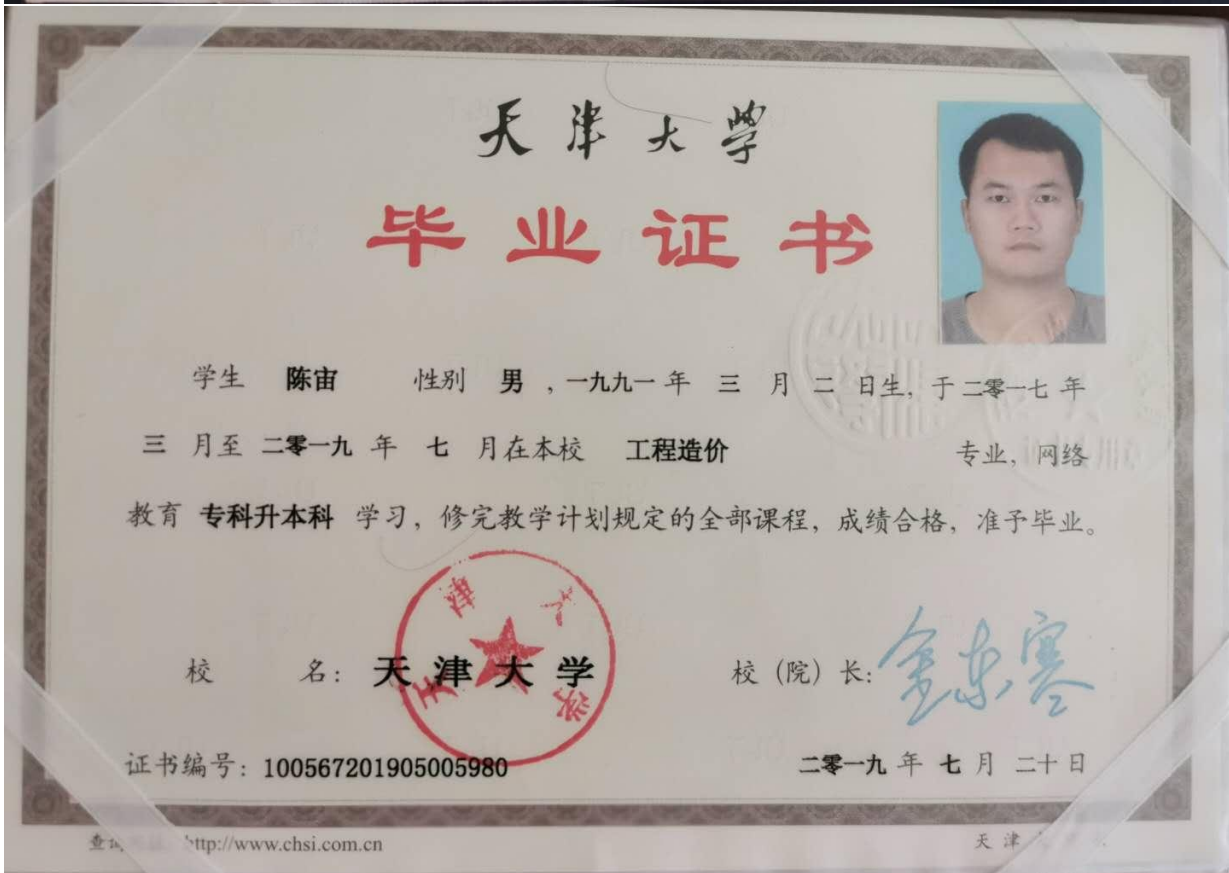 天津大学
毕业证书
学生 陈宙 性别 男 ,一九九一 年 三 月 二 日生, 于 二零一七 年
三 月至 二零一九 年 七 月在本校 工程造价 专业, 网络
教育 专科升本科 学习, 修完教学计划规定的全部课程, 成绩合格, 准予毕业。
天津大学
校 名: 天津大学 校 (院) 长: 金东寒
证书编号: 100567201905005980 二零一九 年 七 月 二十 日
http://www.chsi.com.cn 天津